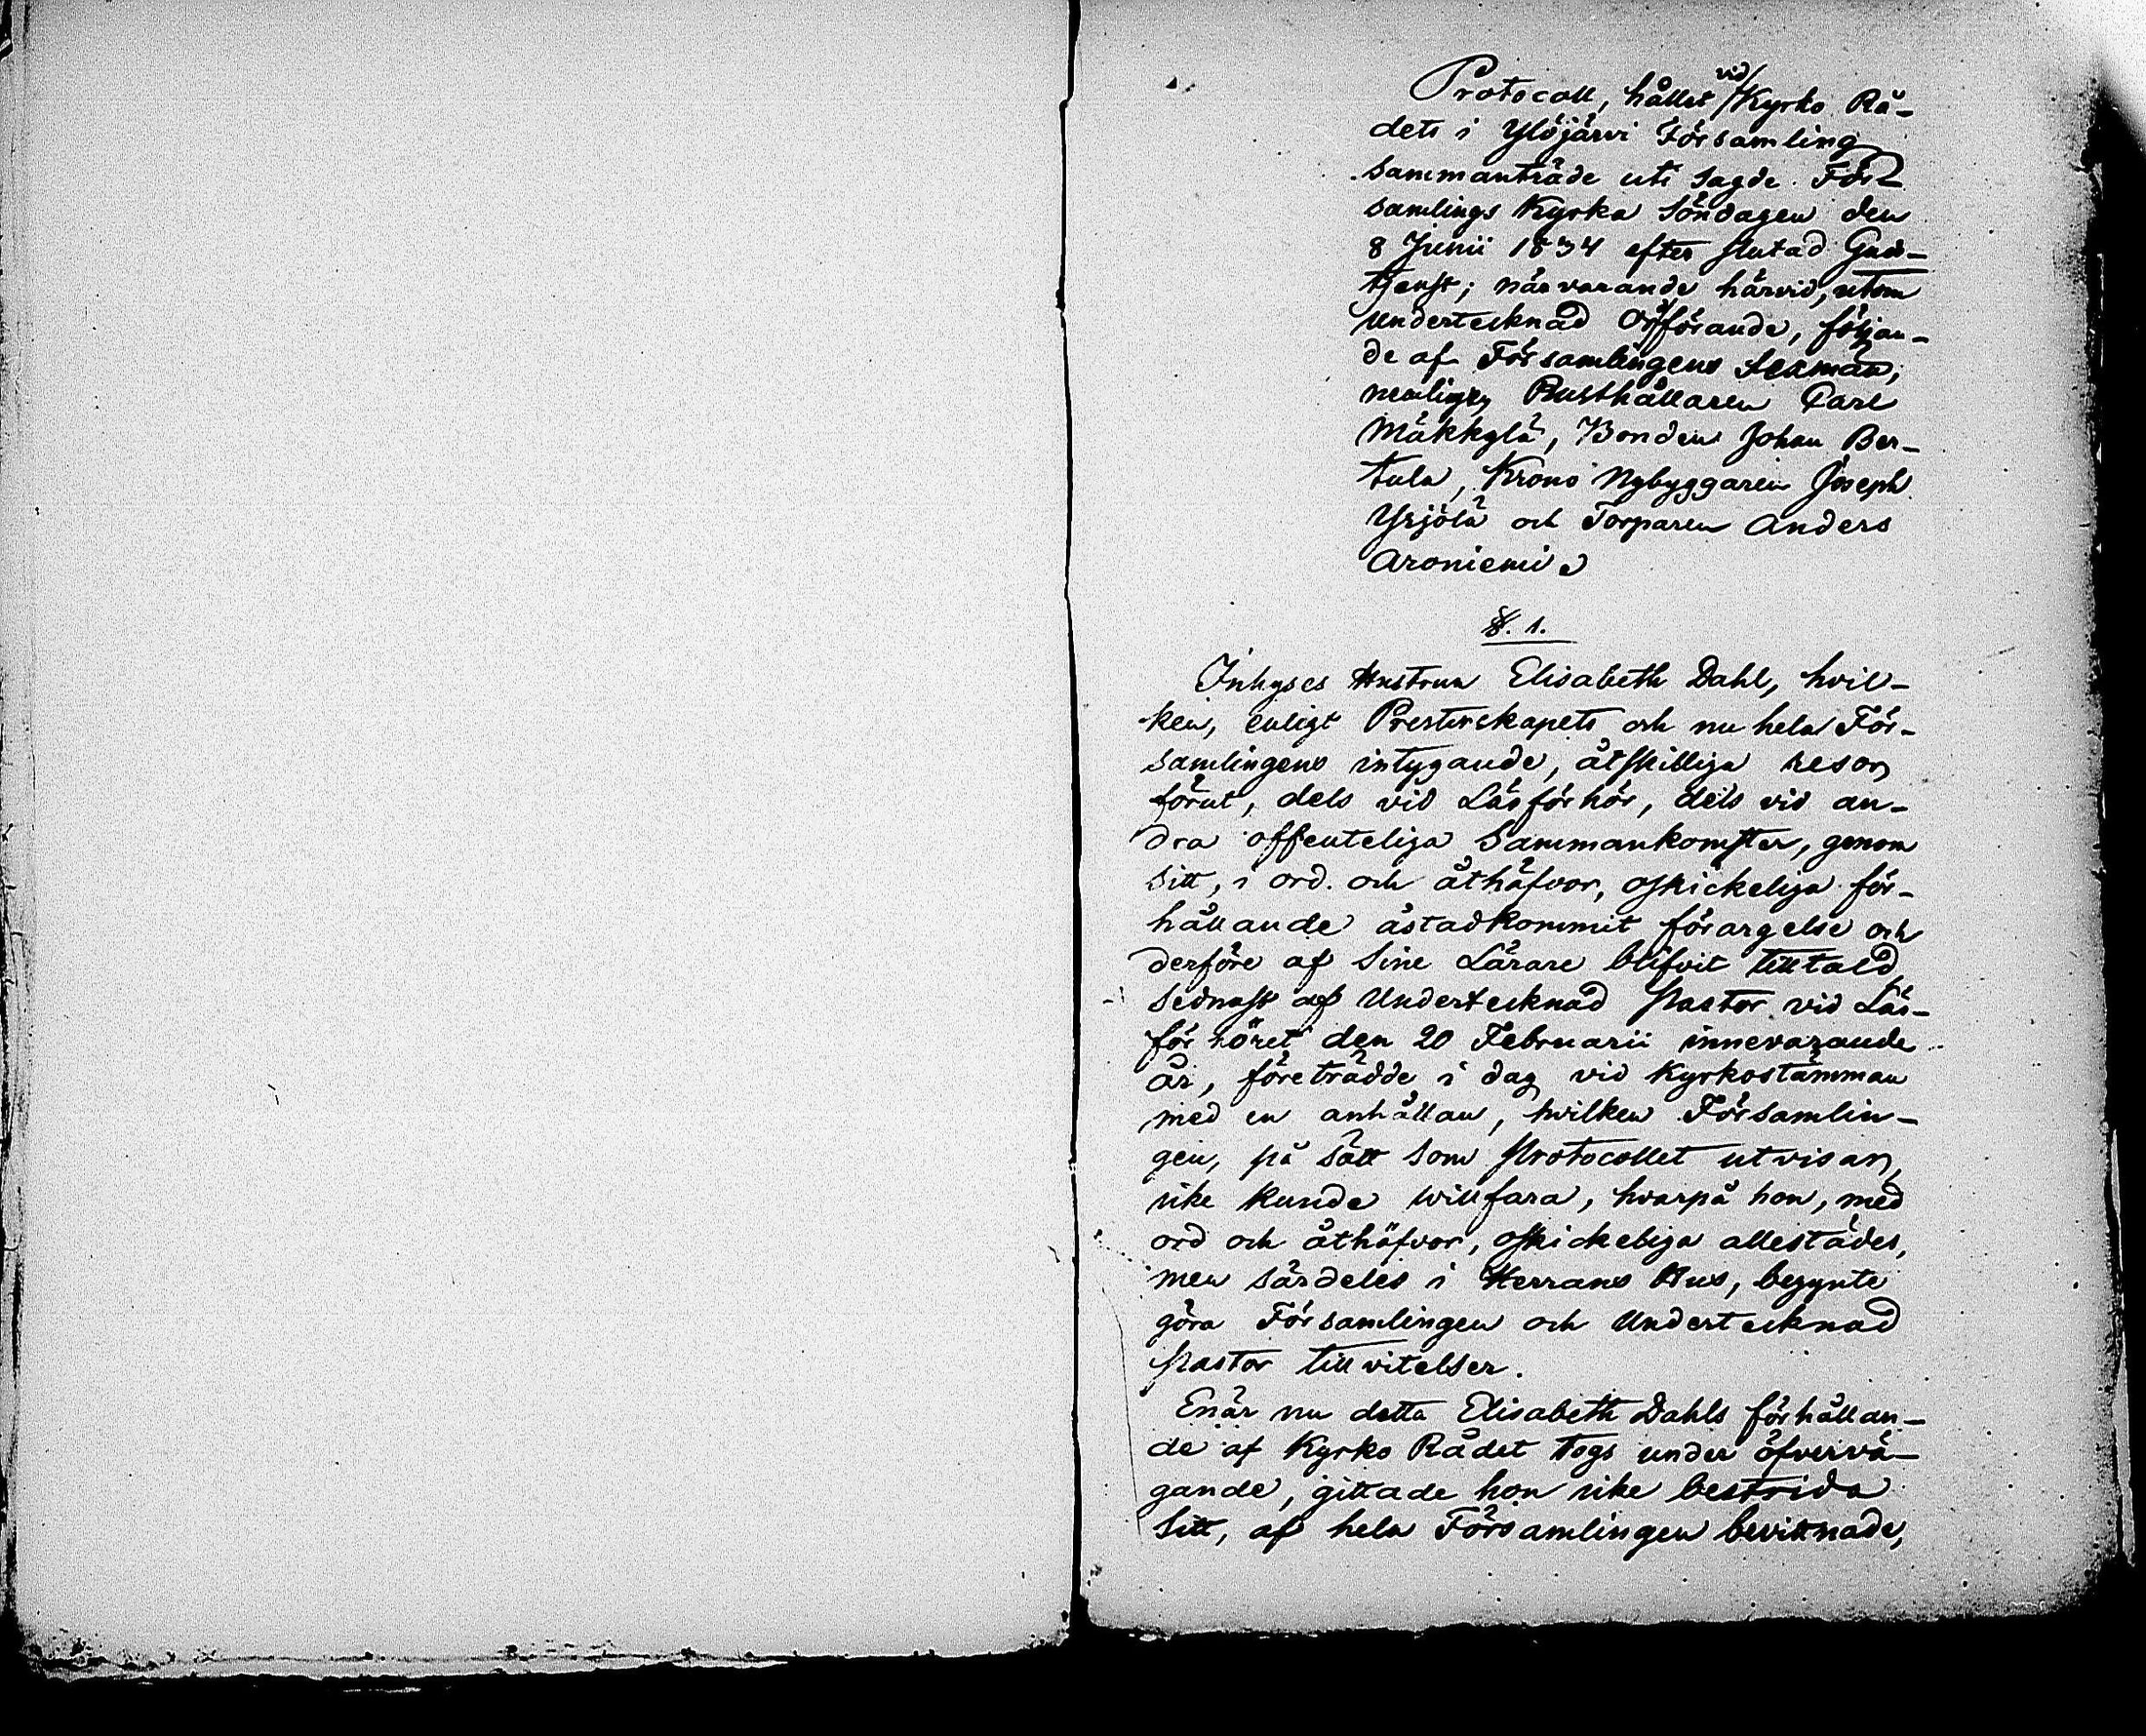 Protocoll, hållet vid Kyrko Rå-
dets i Ylöjärvi Församling
sammanträde uti sagde För-
samlings Kyrka Söndagen den
8 Junii 1834 efter slutad Guds-
tjenst; närvarande härvid, utom
undertecknad Ordförande, följan-
de af Församlingens Sexmän,
nemligen Rusthållaren Carl
Mäkkylä, Bonden Johan Ber-
tula, Krono Nybyggaren Joseph
Yrjölä och Torparen Anders
Aroniemi.
§. 1.
Inhyses Hustrun Elisabeth Dahl, hvil-
ken, enligt Presterskapets och nu hela För-
samlingens intygande, åtskilliga resor
förut, dels vid Läsförhör, dels vid an-
dra offenteliga Sammankomster, genom
sitt, i ord och åthäfvor, oskickeliga för-
hållande åstadkommit förargelse och
derföre af Sine Lärare blifvit tilltald
sednast af Undertecknad Pastor vid Läs-
förhöret den 20 Februarii innevarande
år, företrädde i dag vid Kyrkostämman
med en anhållan, hvilken Församlin-
gen, på sätt som Protocollet utvisar,
icke kunde willfara, hvarpå hon, med
ord och åthäfvor, oskickeliga allestädes,
men särdeles i Herrans Hus, begynte
göra Församlingen och Undertecknad
Pastor tillvitelser.
Enär nu detta Elisabeth Dahls förhållan-
de af Kyrko Rådet togs under öfvervä-
gande, gittade hon icke bestrida
Sitt, af hela Församlingen bevittnade,